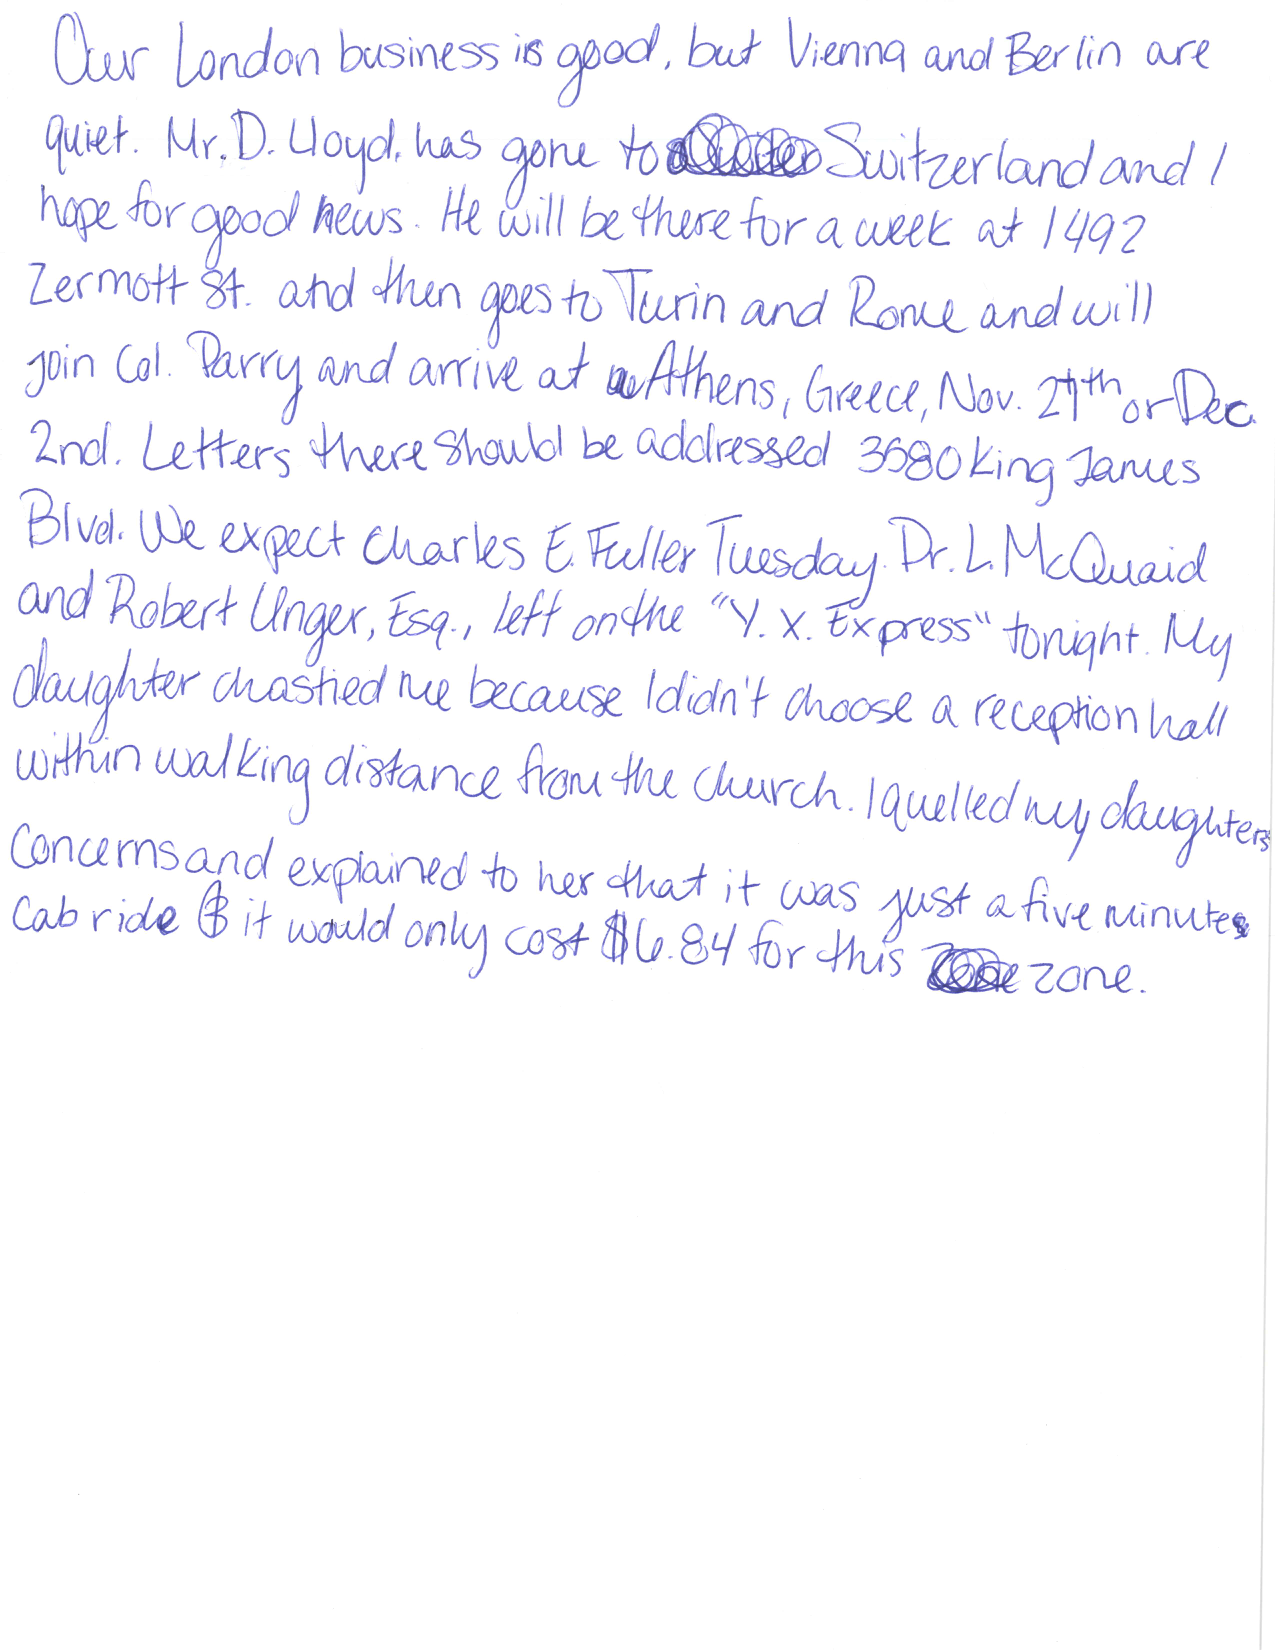 Our London business is good, but Vienna and Berlin are
quiet. Mr. D. Lloyd. has gone to Switzerland and I
hope for good news. He will be there for a week at 1492
Zermott St. and then goes to Turin and Rome and will
join Col. Parry and arrive at Athens, Greece, Nov. 27th or Dec.
2nd. Letters there should be addressed 3580 King James
Blvd. We expect Charles E. Fuller Tuesday. Dr. L. McQuaid
and Robert Unger, Esq., left on the "Y. X. Express" tonight. My
daughter chastied me because I didn't choose a reception hall
within walking distance from the church. I quelled my daughters
concerns and explained to her that it was just a five minutes
cab ride & it would only cost $6.84 for this zone.